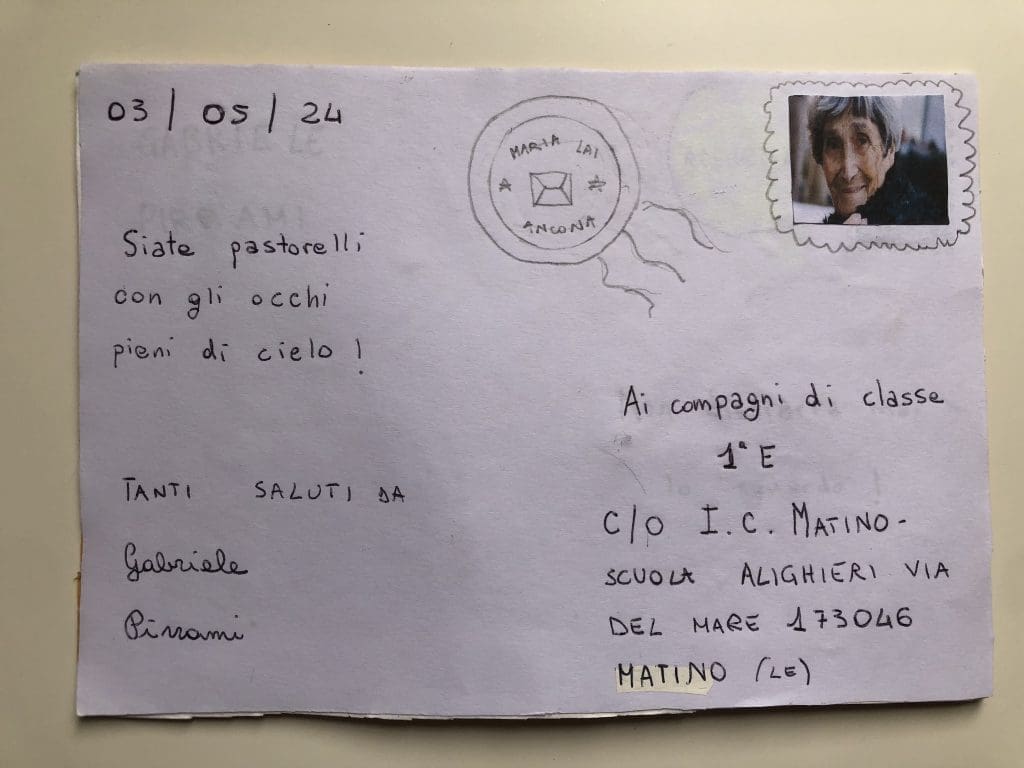 03/05/24
MARIA LAI
ANCONA
Siate pastorelli
con gli occhi
pieni di cielo!
TANTI SALUTI DA
Gabriele
Ai compagni di classe
1ª E
C/O I.C. MATINO-
SCUOLA ALIGHIERI VIA
DEL MARE 173046
MATINO (LE)